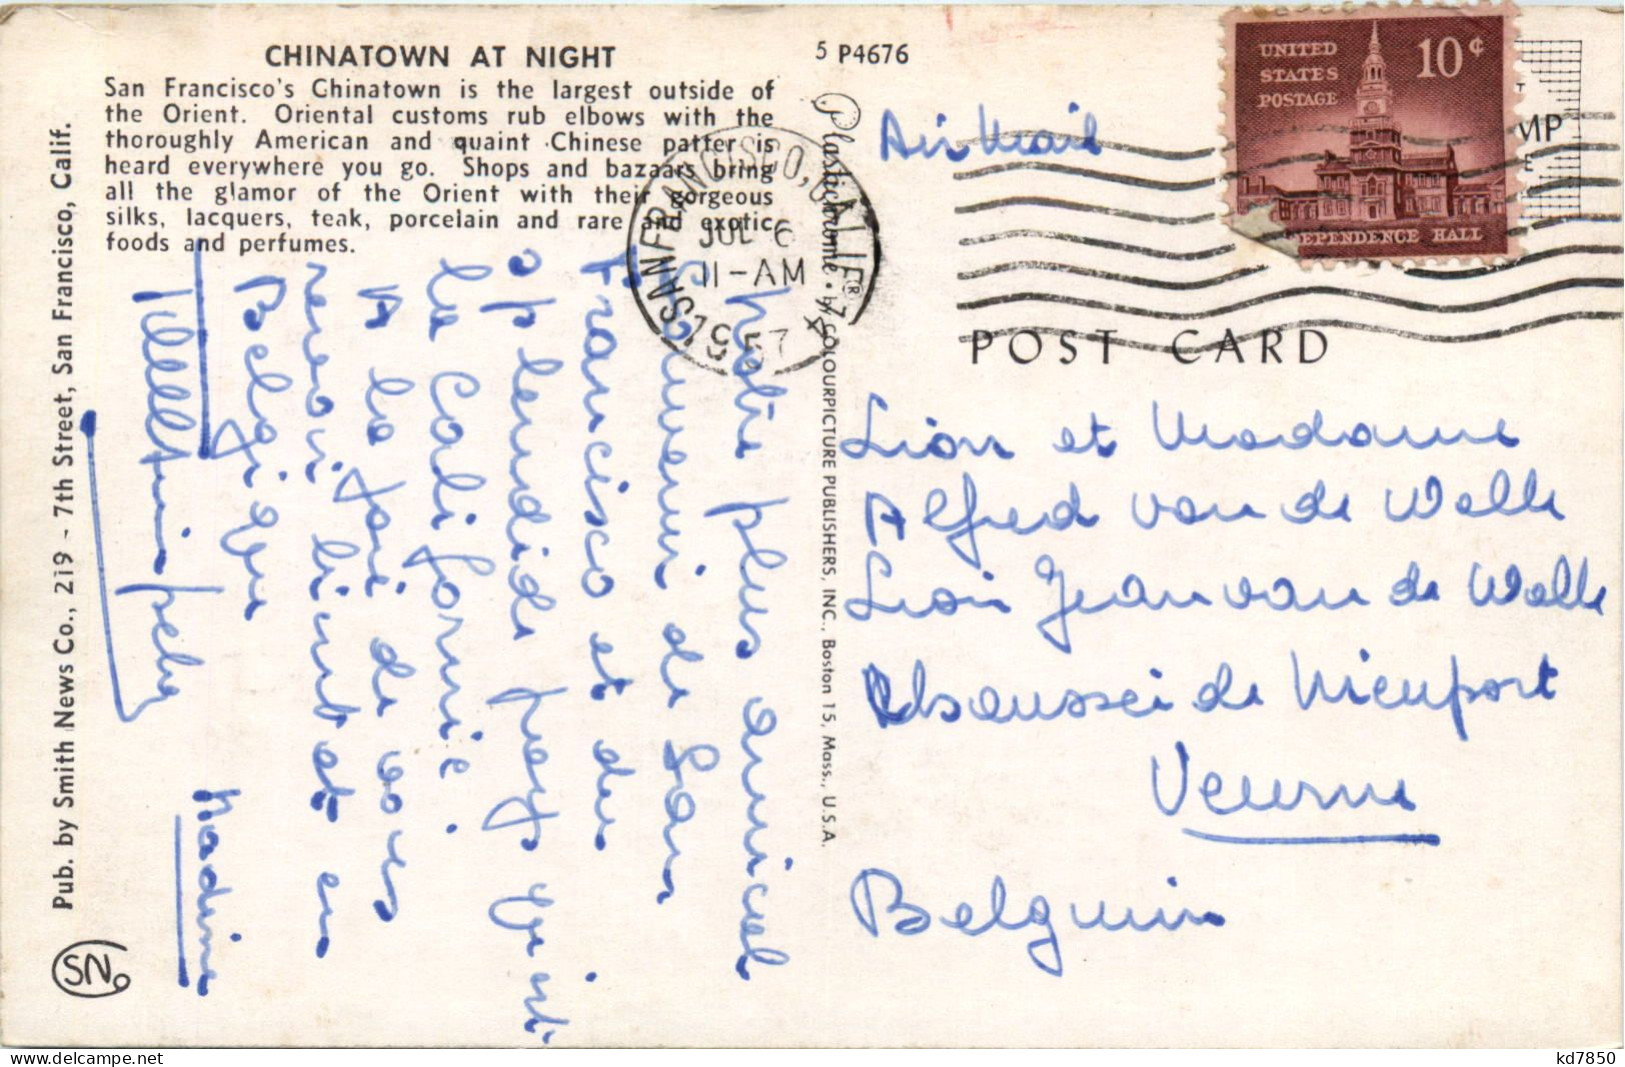 CHINATOWN AT NIGHT
San Francisco's Chinatown is the largest outside of
the Orient. Oriental customs rub elbows with the
thoroughly American and quaint Chinese patter is
heard everywhere you go. Shops and bazaars bring
all the glamor of the Orient with their gorgeous
silks, lacquers, teak, porcelain and rare and exotic
foods and perfumes.
Pub. by Smith News Co., 219 - 7th Street, San Francisco, Calif.
SN
Notre plus amical
Souvenir de San
Francisco et du
splendide pays qu'est
la Californie
A la joie de vous
revoir bientot en
Belgique
Nadine
5 P4676
Plastichrome ® by COLOURPICTURE PUBLISHERS, INC., Boston 15, Mass., U.S.A.
SAN FRANCISCO, CALIF.
JUL 6
11-AM
1957
UNITED
STATES
POSTAGE
10¢
DEPENDENCE HALL
MP
E
Air Mail
POST CARD
Lion et Madame
Alfred van de Walle
Lion Jean van de Walle
Chaussée de Nieuport
Veurne
Belguim
kd7850